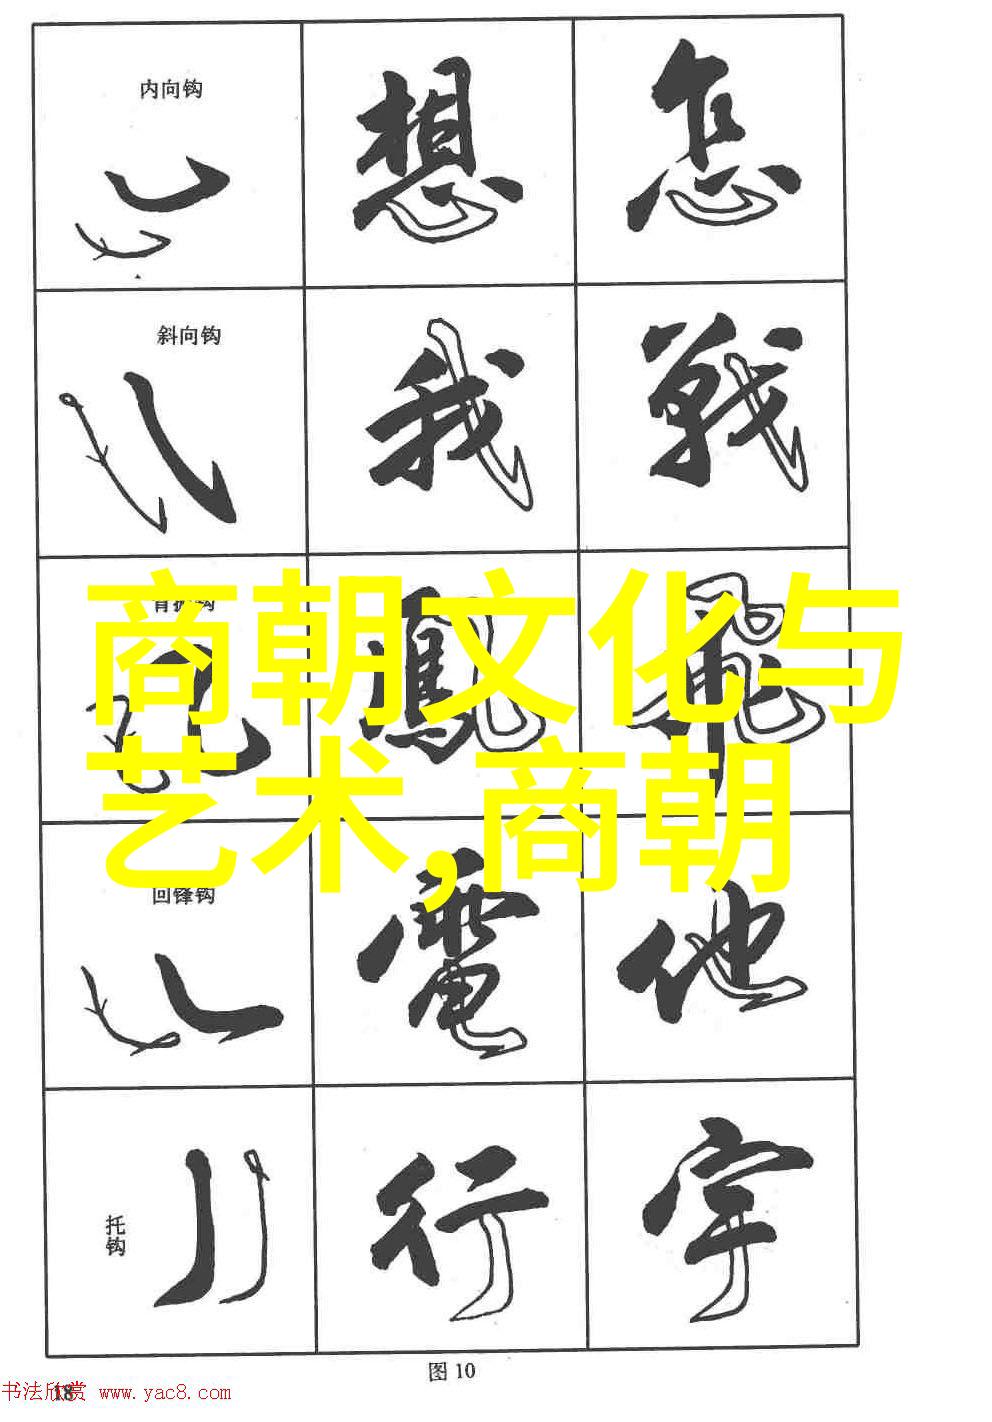 内向钩
想
怎
斜向钩
我
戰
背抛钩
鳳
飛
商朝文化与
艺术,商朝
回锋钩
電
他
托钩
行
宇
图 10
18
书法欣赏 www.yac8.com